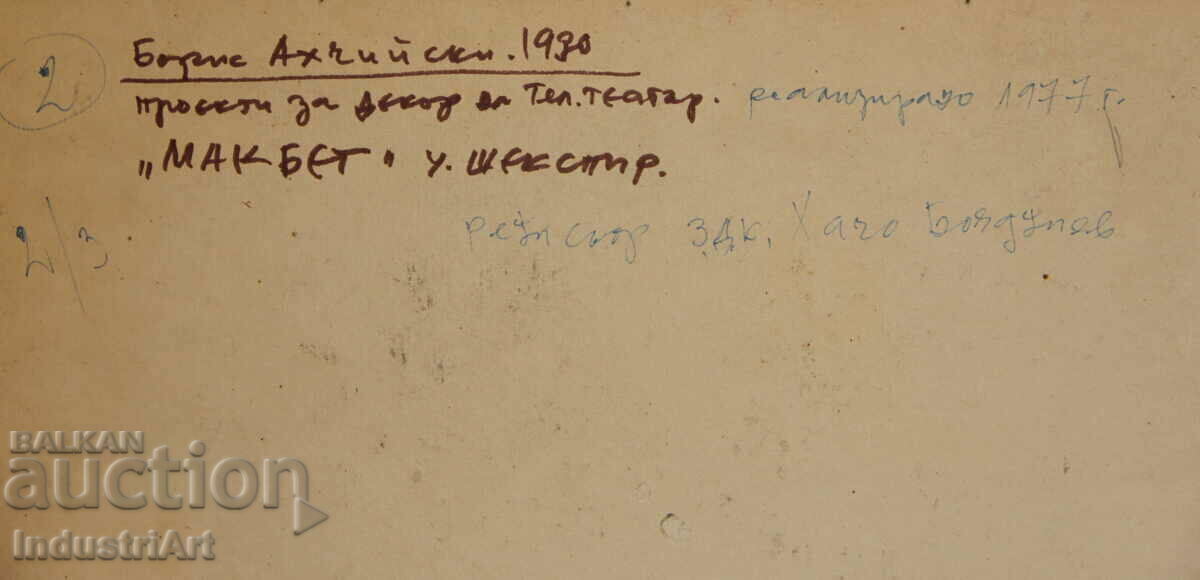 2
Борис Ахчийски. 1930
проекти за декор на Тел. театър. реализирано 1977 г.
„МАКБЕТ" У. ШЕКСПИР.
2/3
режисьор З.Д.К. Хачо Бояджиев
BALKAN
auction
IndustriArt